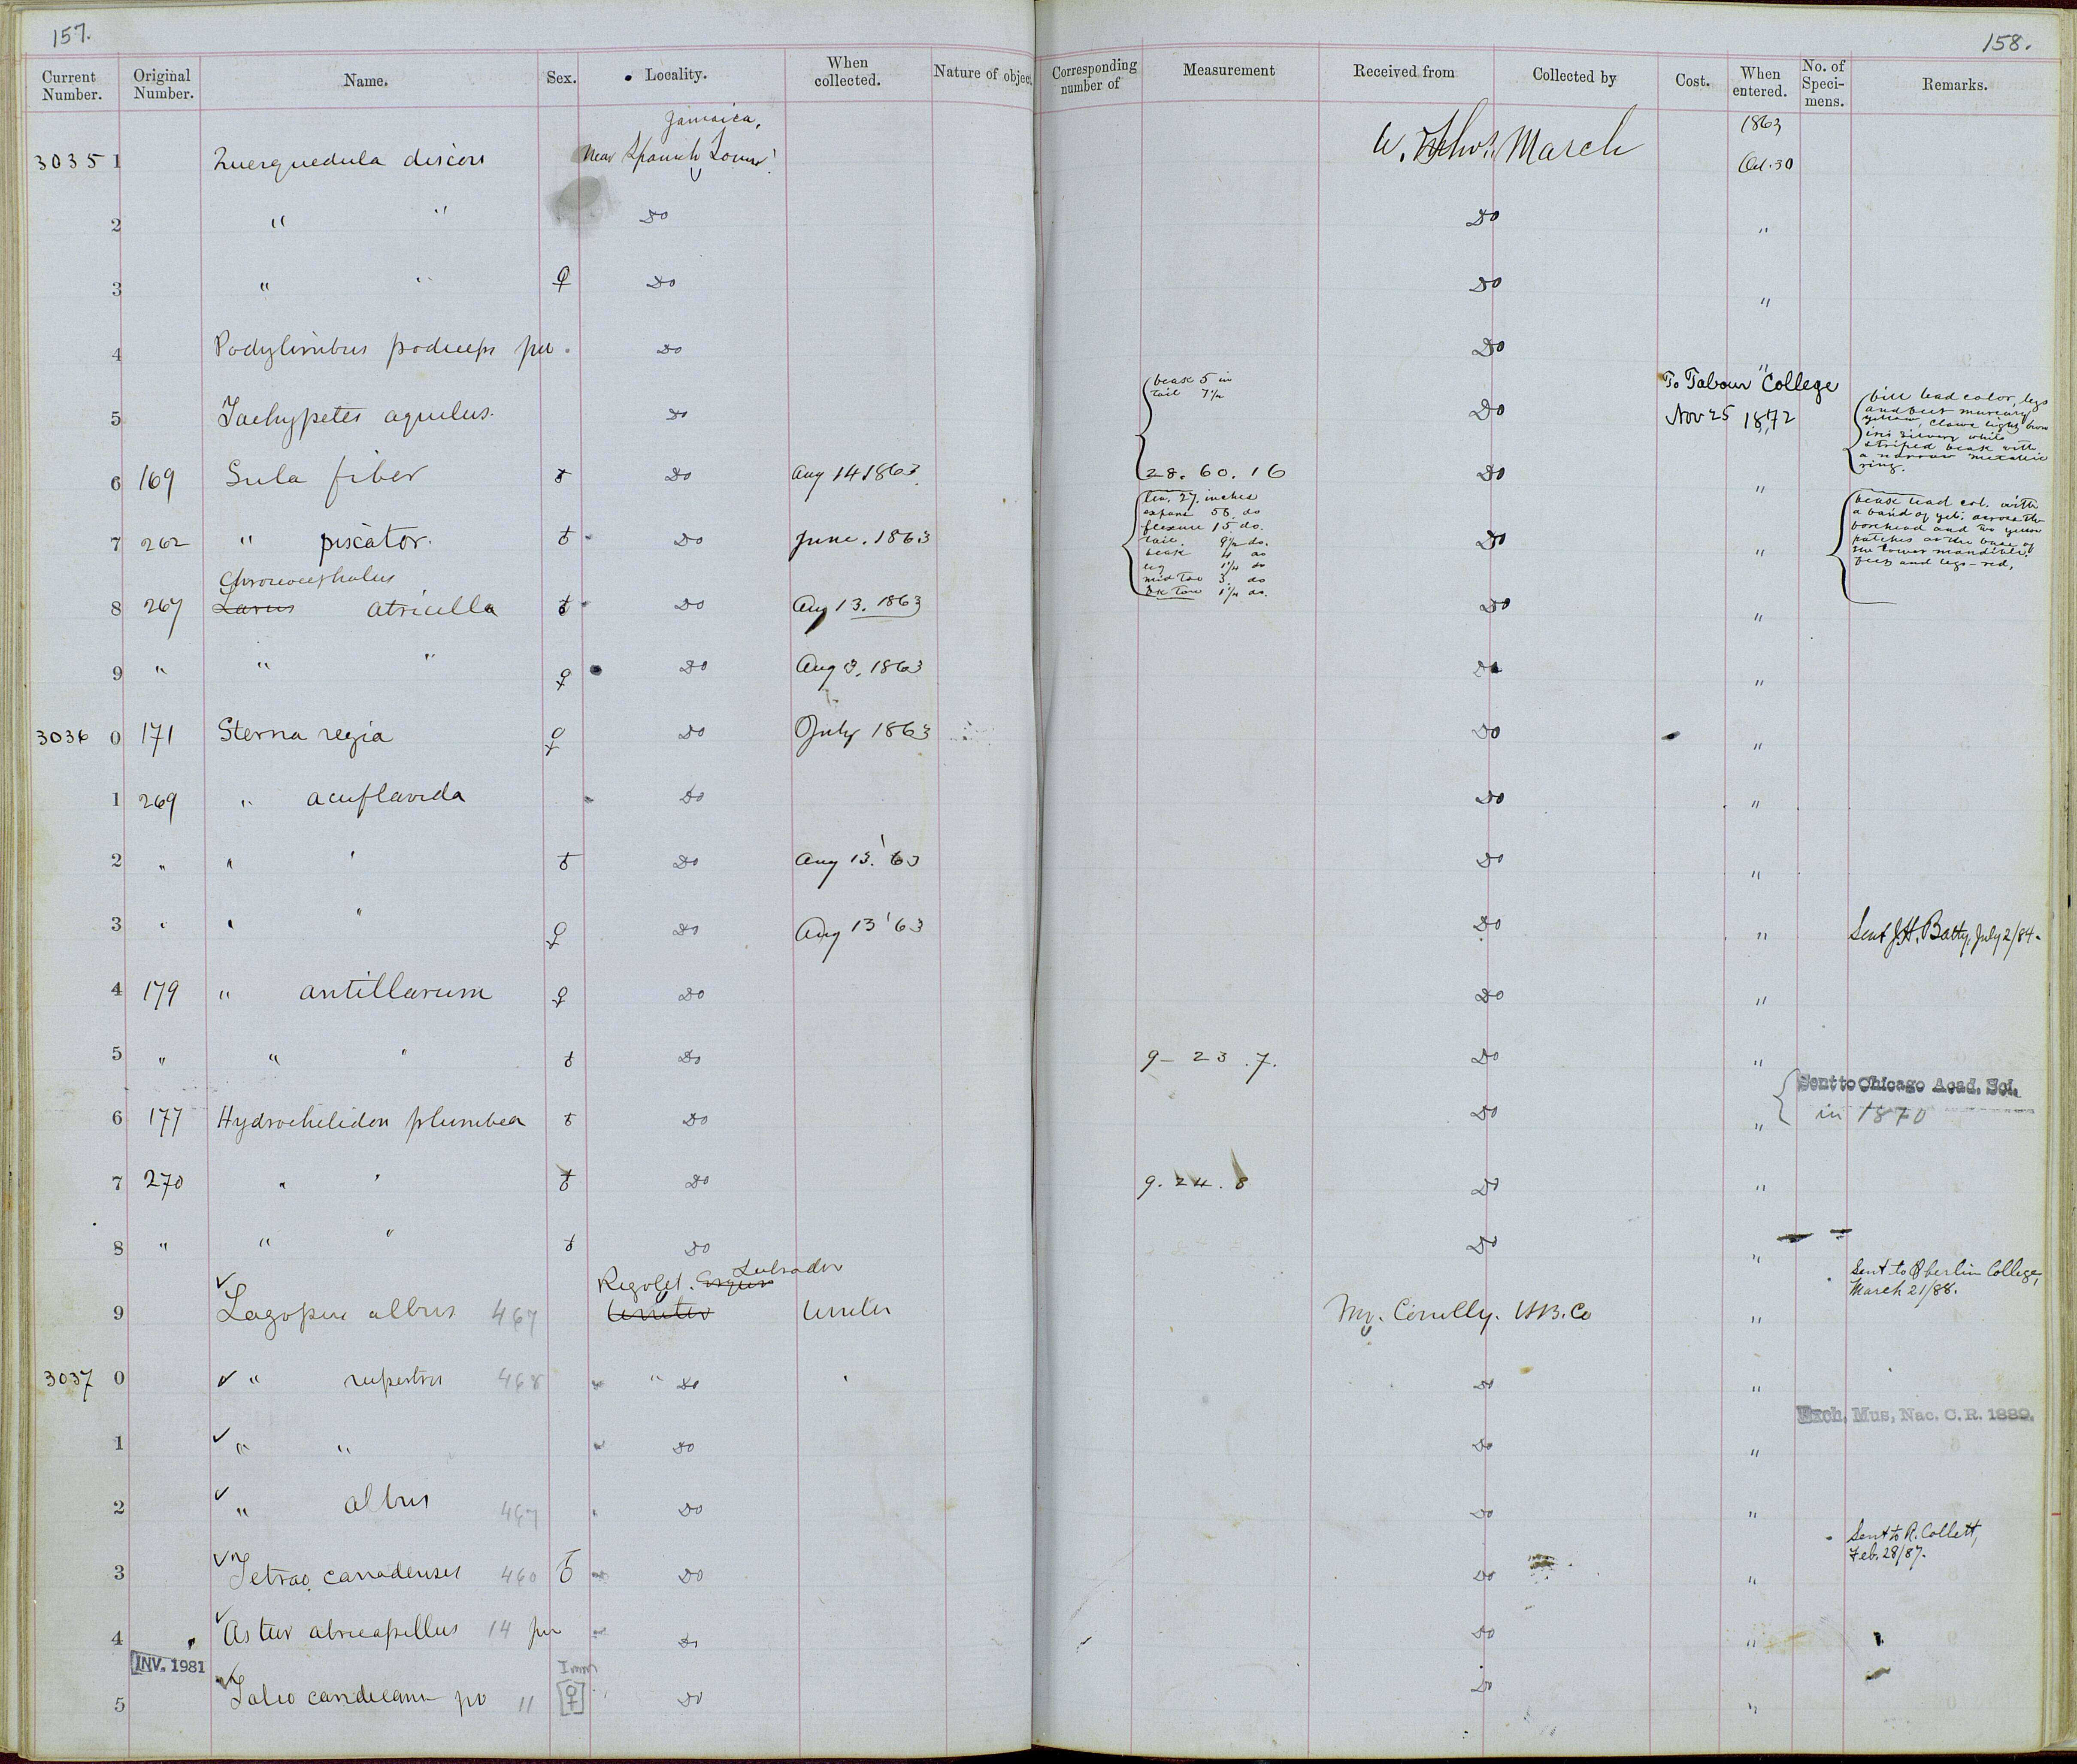 157.
158.
Current Number. Original Number. Name. Sex. Locality. When collected. Nature of object. Corresponding number of Measurement Received from Collected by Cost. When entered. No. of Specimens. Remarks.
Jamaica, 1863
30351 Querquedula discors Near Spanish Town W. Thos. March Oct. 30
2 " " Do Do "
3 " " ♀ Do Do "
4 Podylimbus podiceps Do Do "
beak 5 in
tail 7½
To Tabour College
Nov 25 1872
5 Tachypetes aquilus. Do Do
bill lead color, legs
and feet
yellow, claws light
iris silvery white
striped beak with
a narrow metallic
ring.
6 169 Sula fiber ♂ Do Aug 14 1863 28. 60. 16 Do "
len. 27. inches
expans 58 do
flexure 15 do.
tail. 9½ do.
beak 4 do
leg 1¼ do
mid toe 3. do
7 262 " piscator. ♂ Do June. 1863 Do "
beak lead col. with
a band of yel. across the
forehead and two yellow
patches at the base of
the lower mandible.
feet and legs - red.
Chroicocephalus
8 267 Larus atricilla ♂ Do Aug 13. 1863 Do "
9 " " " ♀ Do Aug 8. 1863 Do "
3036 0 171 Sterna regia ♀ Do July 1863 Do "
1 269 " acuflavida Do Do "
2 " " " ♂ Do Aug 13.' 63 Do "
3 " " " ♀ Do Aug 13 '63 Do " Sent J.H. Batty, July 2/84.
4 179 " antillarum ♀ Do Do "
5 " " " ♂ Do 9 - 23. 7. Do "
Sent to Chicago Acad. Sci.
in 1870
6 177 Hydrochelidon plumbea ♂ Do Do "
7 270 " " ♂ Do 9. 24. 8 Do "
8 " " " ♂ Do Do "
Rigolet. Labrador
Sent to Oberlin College,
March 21/88.
9 Lagopus albus 467 Winter Winter Mr. Connolly. H.B. Co "
3037 0 " rupestris 468 " Do Do "
Exch. Mus, Nac. C. R. 1889.
1 " " Do Do "
2 " albus 467 Do Do "
Sent to R. Collett,
Feb. 28/87.
3 Tetrao canadensis 460 ♂ Do Do "
4 Astur atricapillus 14 Do Do "
INV. 1981
Imm
5 Falco candicans 11 [♀] Do Do "